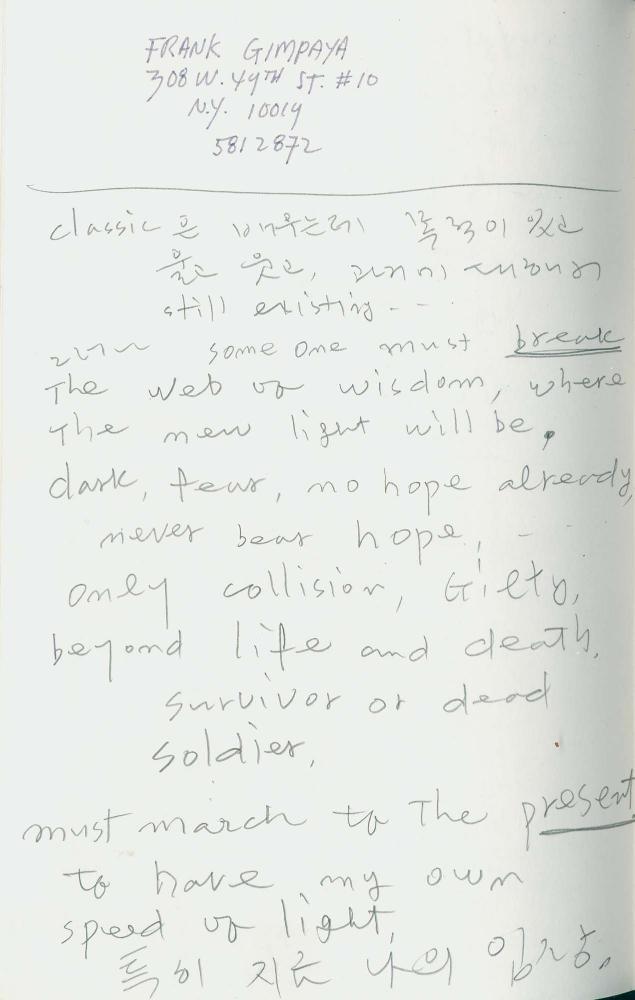 FRANK GIMPAYA
308 W. 49TH ST. #10
N.Y. 10019
581 2872
classic은 배우는데 폭력이 있고
울고 웃고,
still existing - -
그러나 some one must break
The web of wisdom, where
The new light will be.
dark, fear, no hope already,
never bear hope, -
only collision, Gilety,
beyond life and death,
survivor or dead
soldier,
must march to The present
to have my own
speed of light,
특히 지금 나의 입장.